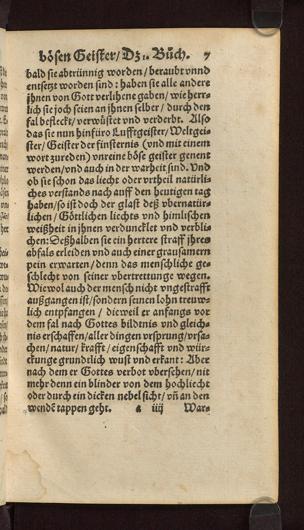 bösen Geister/ Dz 1. Bůch. 7
bald sie abtrünnig worden/ beraubt vnnd
entsetzt worden sind: haben sie alle andere
jhnen von Gott verlihene gaben/ wie herr-
lich sie joch seien an jhnen selber/ durch den
fal befleckt/ verwüstet vnd verderbt. Also
das sie nun hinfüro Lufftgeister/ Weltgei-
ster/ Geister der finsternis (vnd mit einem
wort zureden) vnreine böse geister genent
werden/ vnd auch in der warheit sind. Vnd
ob sie schon das liecht oder vrtheil natürli-
ches verstands nach auff den heutigen tag
haben/ so ist doch der glast deß vbernatür-
lichen/ Göttlichen liechts vnd himlischen
weißheit in jhnen verduncklet vnd verbli-
chen: Deßhalben sie ein hertere straff jhres
abfals erleiden vnd auch einer grausamern
pein erwarten/ denn das menschliche ge-
schlecht von seiner vbertrettunge wegen.
Wiewol auch der mensch nicht vngestrafft
außgangen ist/ sondern seinen lohn treuw-
lich entpfangen/ dieweil er anfangs vor
dem fal nach Gottes bildtnis vnd gleich-
nis erschaffen/ aller dingen vrsprung/ vrsa-
chen/ natur/ krafft/ eigenschafft vnd wür-
ckunge grundtlich wust vnd erkant: Aber
nach dem er Gottes verbot vbersehen/ nit
mehr denn ein blinder von dem hochliecht
oder durch ein dicken nebel sicht/ vñ an den
wendē tappen geht. a iiij War-